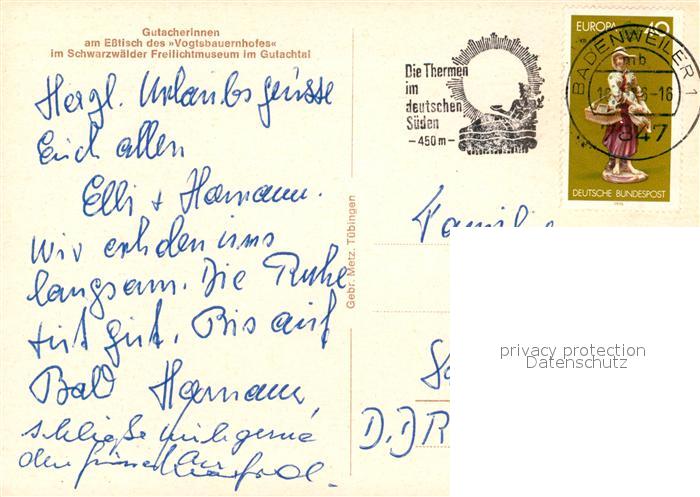 Gutacherinnen
am Eßtisch des »Vogtsbauernhofes«
im Schwarzwälder Freilichtmuseum im Gutachtal
Hergl. Urlaubsgrüsse
Euch allen
Elli + Hermann.
Wir erholen uns
langsam. Die Ruhe
tut gut. Bis auf
Bald Hermann,
schließe mich gerne
den
Gebr. Metz, Tübingen
Die Thermen
im
deutschen
Süden
-450m-
EUROPA 40
DEUTSCHE BUNDESPOST
BADENWEILER 1
mb
-16
7847
Familie
D.DR
privacy protection
Datenschutz